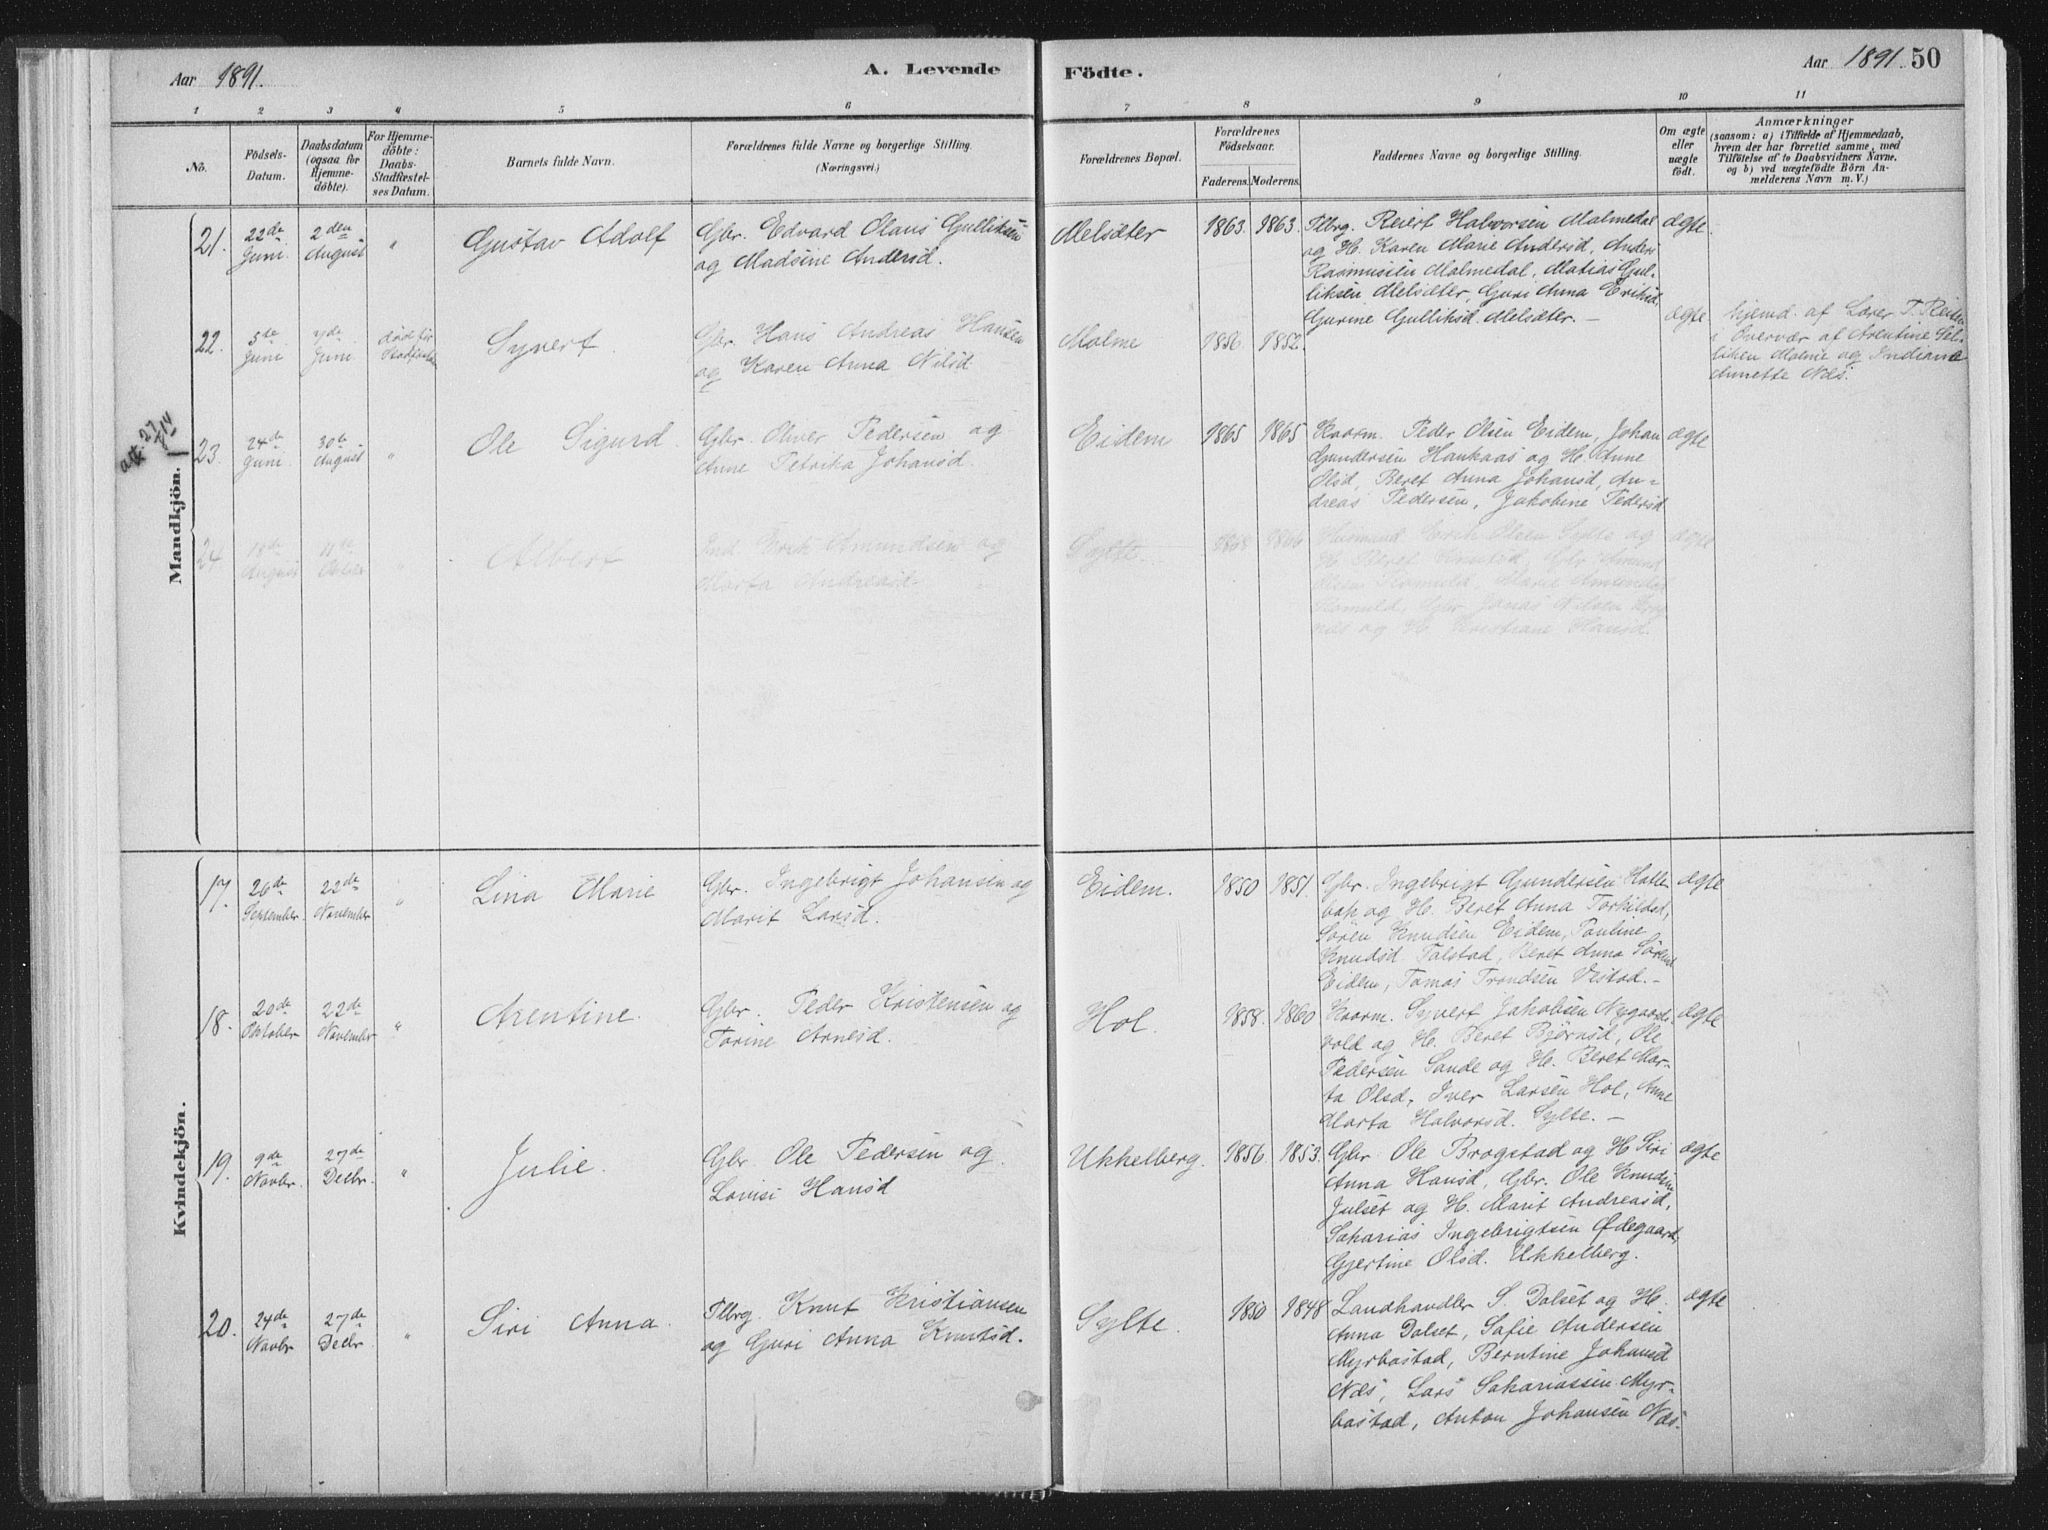 Aar 1891.
A. Levende
Födte.
Aar 1891. 50
1 2 3 4 5 6 7 8 9 10 11
No.
Födsels-
Datum.
Daabsdatum
(ogsaa for
Hjemme-
döbte).
For Hjemme-
döbte:
Daabs-
Stadfæstel-
ses Datum.
Barnets fulde Navn.
Forældrenes fulde Navne og borgerlige Stilling.
(Næringsvei.)
Forældrenes Bopæl.
Forældrenes
Födselsaar.
Faderens. Moderens.
Faddernes Navne og borgerlige Stilling.
Om ægte
eller
uægte
födt.
Anmærkninger
(saasom: a) i Tilfælde af Hjemmedaab,
hvem der har forrettet samme, med
Tilföielse af to Daabsvidners Navne.
og b) ved uægtefödte Börn An-
melderens Navn m. V.)
Mandkjön.
21.
22de
Juni
2den
August
"
Gustav Adolf
Gbr. Edvard Olaus Gulliksen
og Madsine Andersd.
Melsæter
1863. 1863.
Tlbrg. Reiert Halvorsen Malmedal
og H. Karen Marie Andersd, Anders
Rasmussen Malmedal, Matias Gul-
liksen Melsæter, Guri Anna Eriksd,
Gurine Gulliksd. Melsæter. —
ægte
22.
5te
Juni
7de
Juni
død før
Syvert
Gbr. Hans Andreas Hansen
og Karen Anna Nilsd.
Malme
1856. 1852.
ægte
hjemd. af Lærer T.
i Overvær af Arentine
Malme og Indiane
Annette Næs.
23.
24de
Juni
30te
August
"
Ole Sigurd
Gbr. Oliver Pedersen og
Anne Petrika Johansd.
Eidem
1865 1865
Kaarm. Peder Olsen Eidem, Johan
Gundersen Haukaas og H. Anne
Olsd, Beret Anna Johansd, An-
dreas Pedersen, Jakobine Pedersd
ægte
24
18de
August
"
Albert
Ind. Erik Amundsen og
Marta Andreasd.
Sylte.
1866
Husmand Erik Olsen Sylte og
H. Beret Knutsd, Gbr Amund
Olsen Marie Amundsd
Gbr Jonas Nilsen
og H. Kristiane Hansd.
ægte
Kvindekjön.
17.
26de
September
22de
November
"
Lina Marie
Gbr. Ingebrigt Johansen og
Marit Larsd.
Eidem.
1850 1851.
Gbr. Ingebrigt Gundersen Holle-
bak og H. Beret Anna Torkildsd,
Sören Knudsen Eidem, Pauline
Knudsd Talstad, Beret Anna Sörensd
Eidem, Tomas Trondsen Vestad. —
ægte
18.
20de
Oktober
22de
November
"
Arentine.
Gbr. Peder Kristensen og
Torine Arnesd.
Hol.
1858. 1860
Kaarm. Syvert Jakobsen Nygaards-
vold og H. Beret Björnsd, Ole
Pedersen Sande og H. Beret Mar-
ta Olsd, Iver Larsen Hol, Anne
Marta Halvorsd. Sylte. —
ægte
19.
9de
Novbr.
27de
Decbr.
"
Julie.
Gbr Ole Pedersen og
Lovise Hansd
Ukkelberg.
1856. 1853.
Gbr. Ole Brogstad og H. Siri
Anna Hansd, Gbr. Ole Knudsen
Julset og H. Marit Andreasd,
Sakarias Ingebrigtsen Ødegaard,
Gjertine Olsd. Ukkelberg.
ægte
20.
24de
Novbr
27de
Decbr.
"
Siri Anna.
Tlbrg. Knut Kristiansen
og Guri Anna Knutsd.
Sylte.
1850 1848
Landhandler S. Dalset og H.
Anna Dalset, Sofie Andersen
Myrbostad, Berntine Johansd
Næs, Lars Sakariassen Myr-
bostad, Anton Johansen Næs.
ægte